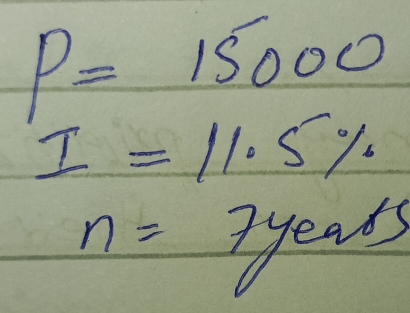 P = 15000
I = 11.5%
n = 7years